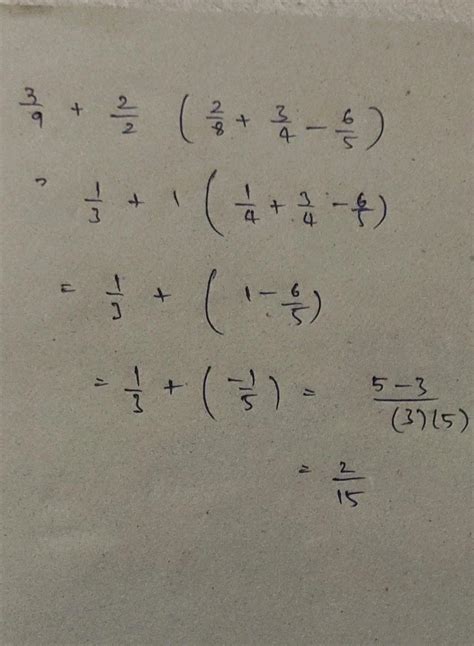 3/9 + 2/2 ( 2/8 + 3/4 - 6/5 )
= 1/3 + 1 ( 1/4 + 3/4 - 6/5 )
= 1/3 + ( 1 - 6/5 )
= 1/3 + ( -1/5 ) = 5-3/(3)(5)
= 2/15